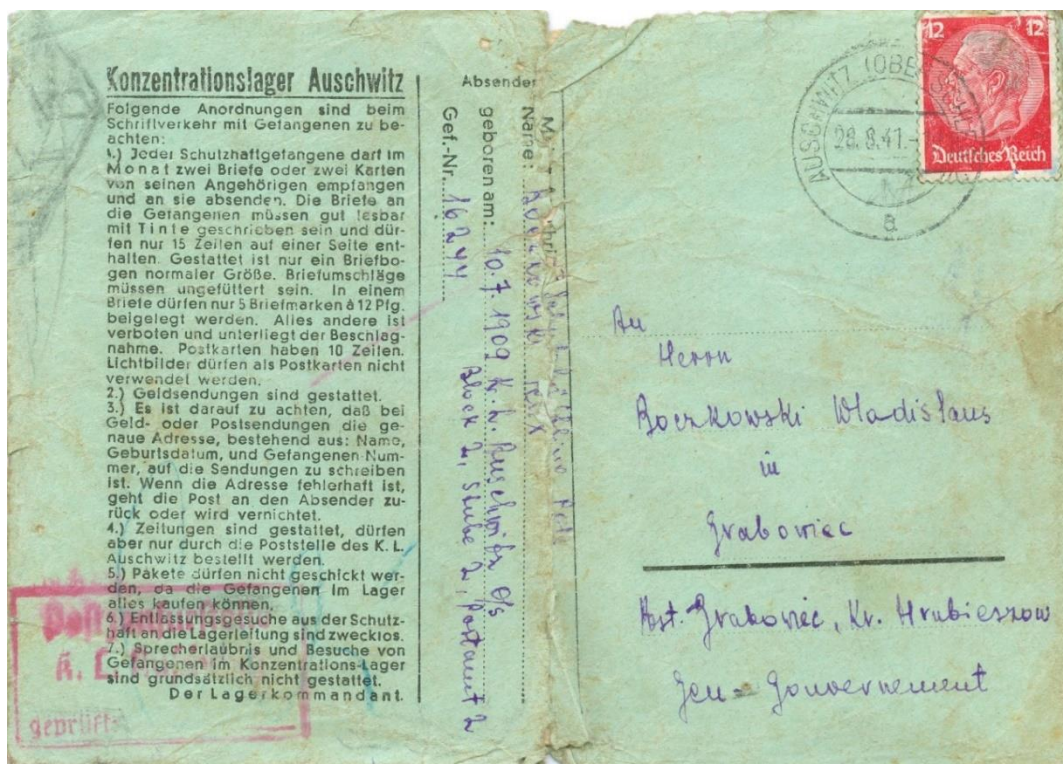 Konzentrationslager Auschwitz
Folgende Anordnungen sind beim
Schriftverkehr mit Gefangenen zu be-
achten:
1.) Jeder Schutzhaftgefangene darf im
Monat zwei Briefe oder zwei Karten
von seinen Angehörigen empfangen
und an sie absenden. Die Briefe an
die Gefangenen müssen gut lesbar
mit Tinte geschrieben sein und dür-
fen nur 15 Zeilen auf einer Seite ent-
halten. Gestattet ist nur ein Briefbo-
gen normaler Größe. Briefumschläge
müssen ungefüttert sein. In einem
Briefe dürfen nur 5 Briefmarken à 12 Pfg.
beigelegt werden. Alles andere ist
verboten und unterliegt der Beschlag-
nahme. Postkarten haben 10 Zeilen.
Lichtbilder dürfen als Postkarten nicht
verwendet werden.
2.) Geldsendungen sind gestattet.
3.) Es ist darauf zu achten, daß bei
Geld- oder Postsendungen die ge-
naue Adresse, bestehend aus: Name,
Geburtsdatum, und Gefangenen-Num-
mer, auf die Sendungen zu schreiben
ist. Wenn die Adresse fehlerhaft ist,
geht die Post an den Absender zu-
rück oder wird vernichtet.
4.) Zeitungen sind gestattet, dürfen
aber nur durch die Poststelle des K. L.
Auschwitz bestellt werden.
5.) Pakete dürfen nicht geschickt wer-
den, da die Gefangenen im Lager
alles kaufen können.
6.) Entlassungsgesuche aus der Schutz-
haft an die Lagerleitung sind zwecklos.
7.) Sprecherlaubnis und Besuche von
Gefangenen im Konzentrations-Lager
sind grundsätzlich nicht gestattet.
Der Lagerkommandant.
geprüft
Absender
Name:
geboren am: 10.7.1909 K. L. Auschwitz O/S
Gef.-Nr. 16244 Block 2, Stube 2, Postamt 2
AUSCHWITZ (OBERSCHLES)
28.8.41.-
a
12 12
Deutsches Reich
An
Herrn
Boczkowski Wladislaus
in
Grabowiec
Pst. Grabowiec, Kr. Hrubieszow
Gen-Gouvernement